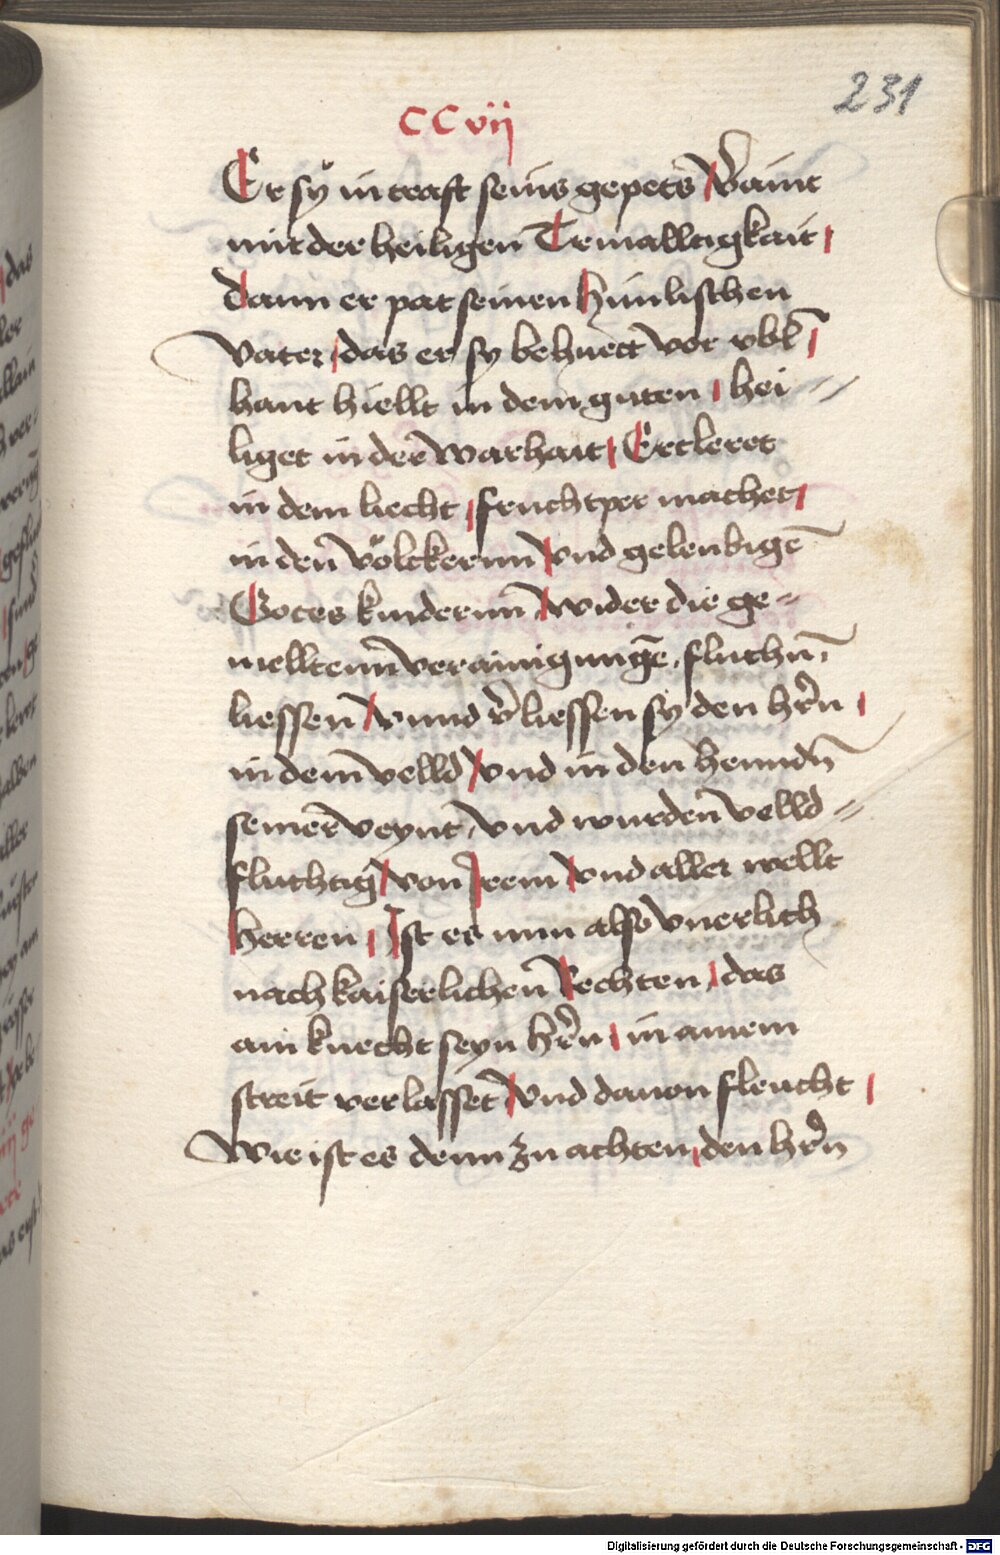 231
CCvij
Er sÿ in craft seins gepets v̄aint
mit der heiligen Triualltigkait
dann er pat seinen himlischen
Vater, das er sy behuett vor vbl̄
hant hiellt in dem guten, hei=
liget in der warhait, Ercleret
in dem liecht, fruchtper machet
in den völckernn vnd geleubigē
Gotes kindernn wider die ge=
melltenn verainigungē, fluchn̄
liessen vnnd v̄liessen sÿ den hr̄n
in dem velld vnd in den henndn̄
seiner veynt, vnd wurden velld=
fluchtig von Irem vnd aller wellt
herren, Ist es nun also vnerlich
nach kaiserlichen Rechten, das
ain knecht seyn hr̄n, in ainem
streit verlasset vnd dauon fleucht
Wie ist es denn zu achten, den hr̄n
Digitalisierung gefördert durch die Deutsche Forschungsgemeinschaft - DFG